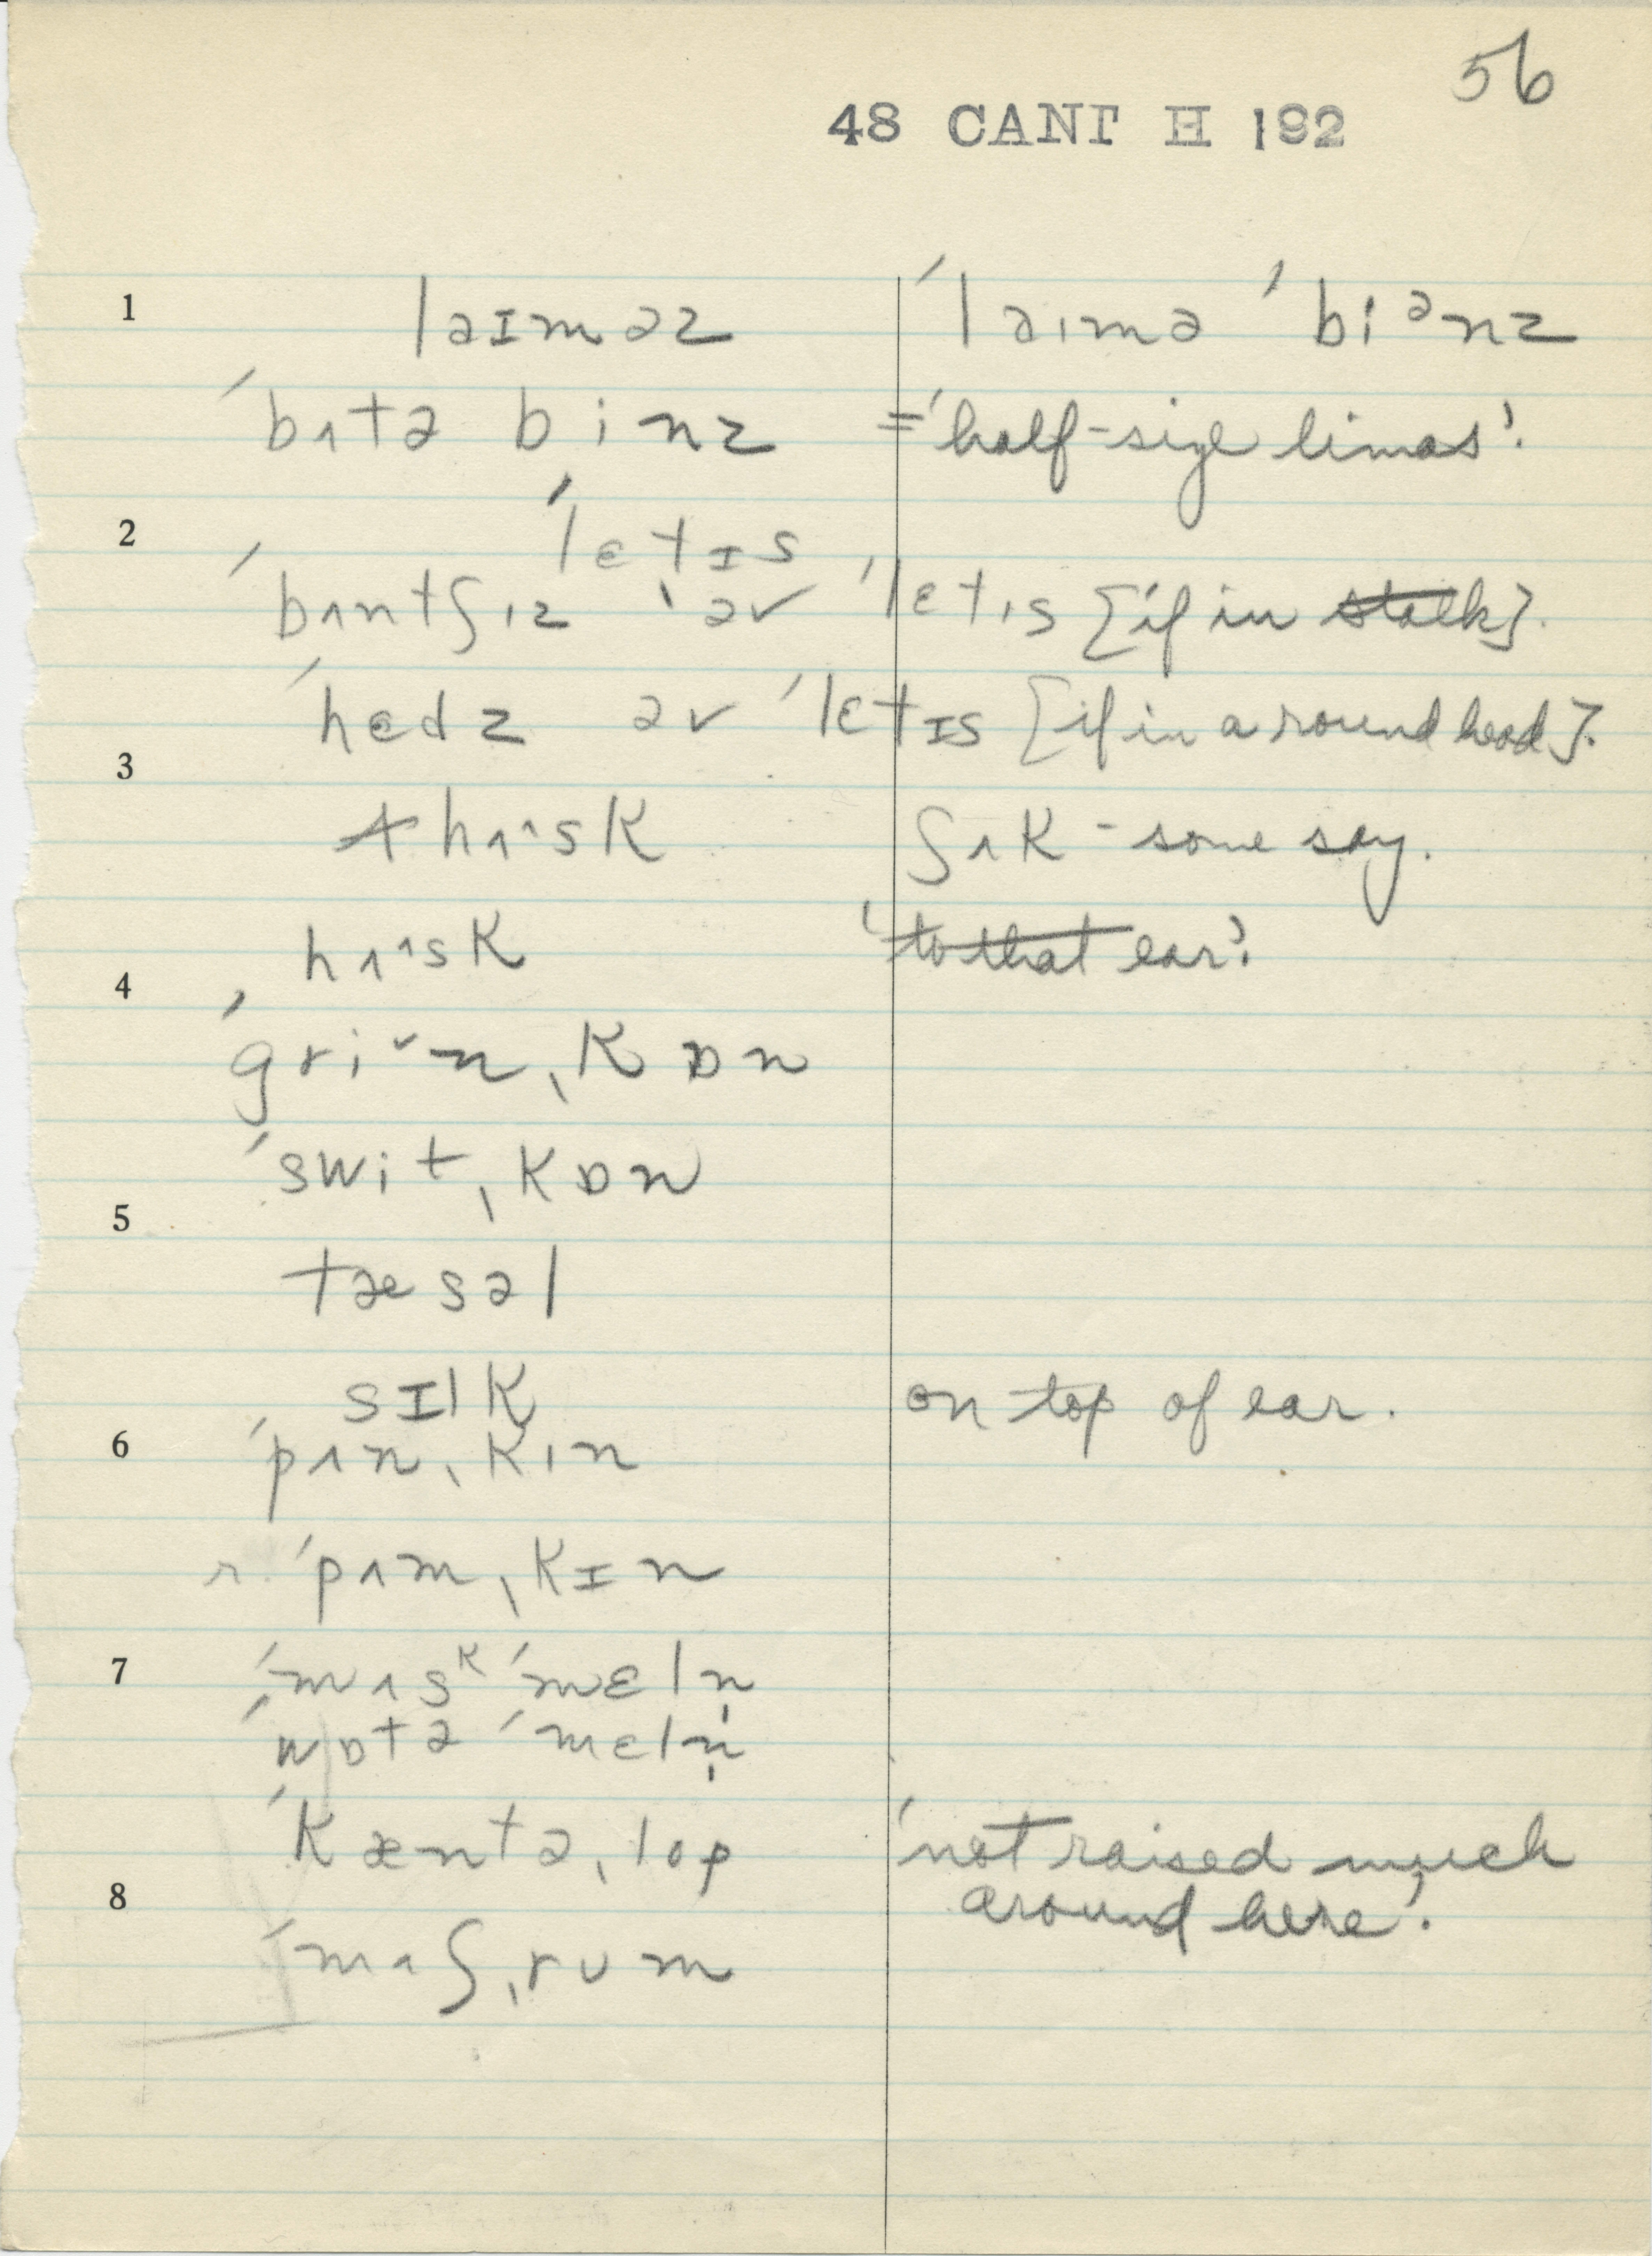 56
48 CANT H 192
1 laɪməz ˈlaɪmə ˈbiᵊnz
ˈbʌtə binz =‘half-size limas’.
2 ˈlɛtɪs
ˈbʌntʃɪz əv ˈlɛtɪs [if in stalk].
ˈhɛdz əv ˈlɛtɪs [if in a round head].
3
hʌ^sk ʃʌk - some say.
hʌ^sk ‘to that ear’.
4
ˈgri˅n ˌkɒn
ˈswit ˌkɒn
5
tæsəl
sɪlk on top of ear.
6 ˈpʌn ˌkɪn
r. ˈpʌm ˌkɪn
7 ˈmʌsᵏ ˈmɛln̩
ˈwɒtə ˈmɛln̩
ˈkæntə ˌlop ‘not raised much
8 around here’.
ˈmʌʃ ˌrum